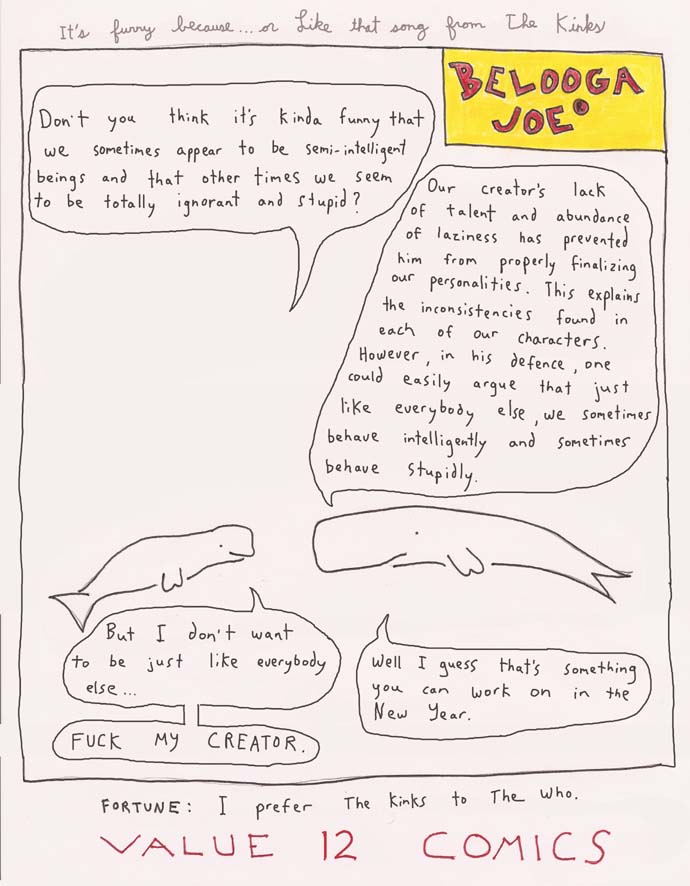 It's funny because... or Like that song from The Kinks
BELOOGA
JOE®
Don't you think it's kinda funny that
we sometimes appear to be semi-intelligent
beings and that other times we seem
to be totally ignorant and stupid?
Our creator's lack
of talent and abundance
of laziness has prevented
him from properly finalizing
our personalities. This explains
the inconsistencies found in
each of our characters.
However, in his defence, one
could easily argue that just
like everybody else, we sometimes
behave intelligently and sometimes
behave stupidly.
But I don't want
to be just like everybody
else...
FUCK MY CREATOR.
Well I guess that's something
you can work on in the
New Year.
FORTUNE: I prefer The Kinks to The Who.
VALUE 12 COMICS